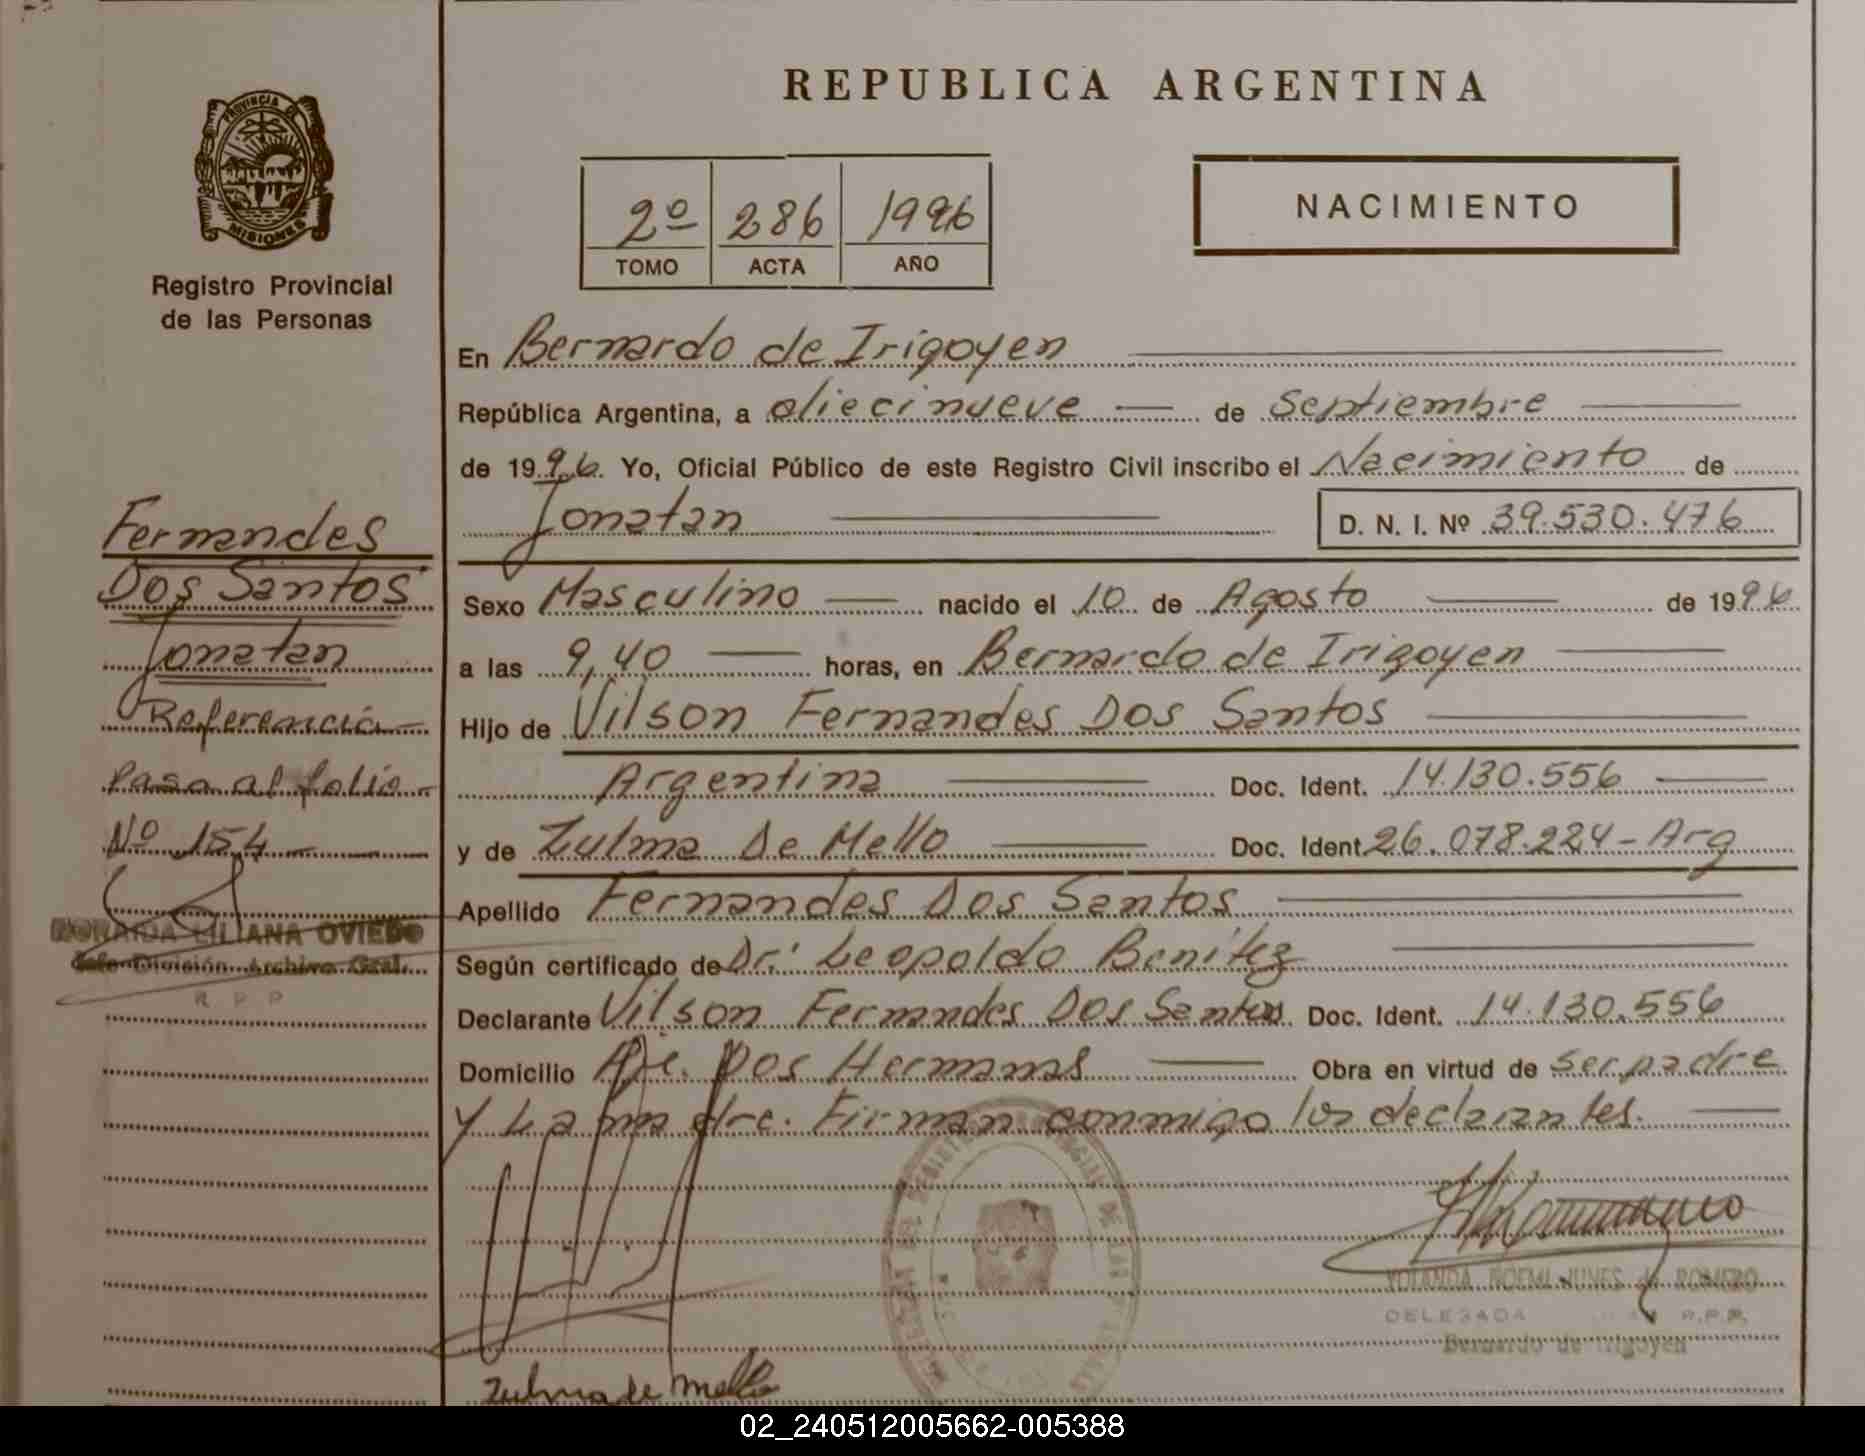 REPUBLICA ARGENTINA
PROVINCIA DE
MISIONES
Registro Provincial
de las Personas
2º 286 1996
TOMO ACTA AÑO
NACIMIENTO
En Bernardo de Irigoyen
República Argentina, a diecinueve de Septiembre
de 1996. Yo, Oficial Público de este Registro Civil inscribo el Nacimiento de
Jonatan D. N. I. Nº 39.530.476
Sexo Masculino nacido el 10 de Agosto de 1996
a las 9,40 horas, en Bernardo de Irigoyen
Hijo de Vilson Fernandes Dos Santos
Argentina Doc. Ident. 14.130.556
y de Zulma De Mello Doc. Ident. 26.078.224-Arg
Apellido Fernandes Dos Santos
Según certificado de Dr. Leopoldo Benítez
Declarante Vilson Fernandes Dos Santos Doc. Ident. 14.130.556
Domicilio Pje. Dos Hermanas Obra en virtud de ser padre
y La madre. Firman conmigo los declarantes.
Fernandes
Dos Santos
Jonatan
Referencia
Pasa al folio
Nº 154
LILIANA OVIEDO
Jefe División Archivo Gral.
R P P
YOLANDA NOEMI NUNES de ROMERO
DELEGADA R.P.P.
Bernardo de Irigoyen
Zulma de Mello
02_240512005662-005388